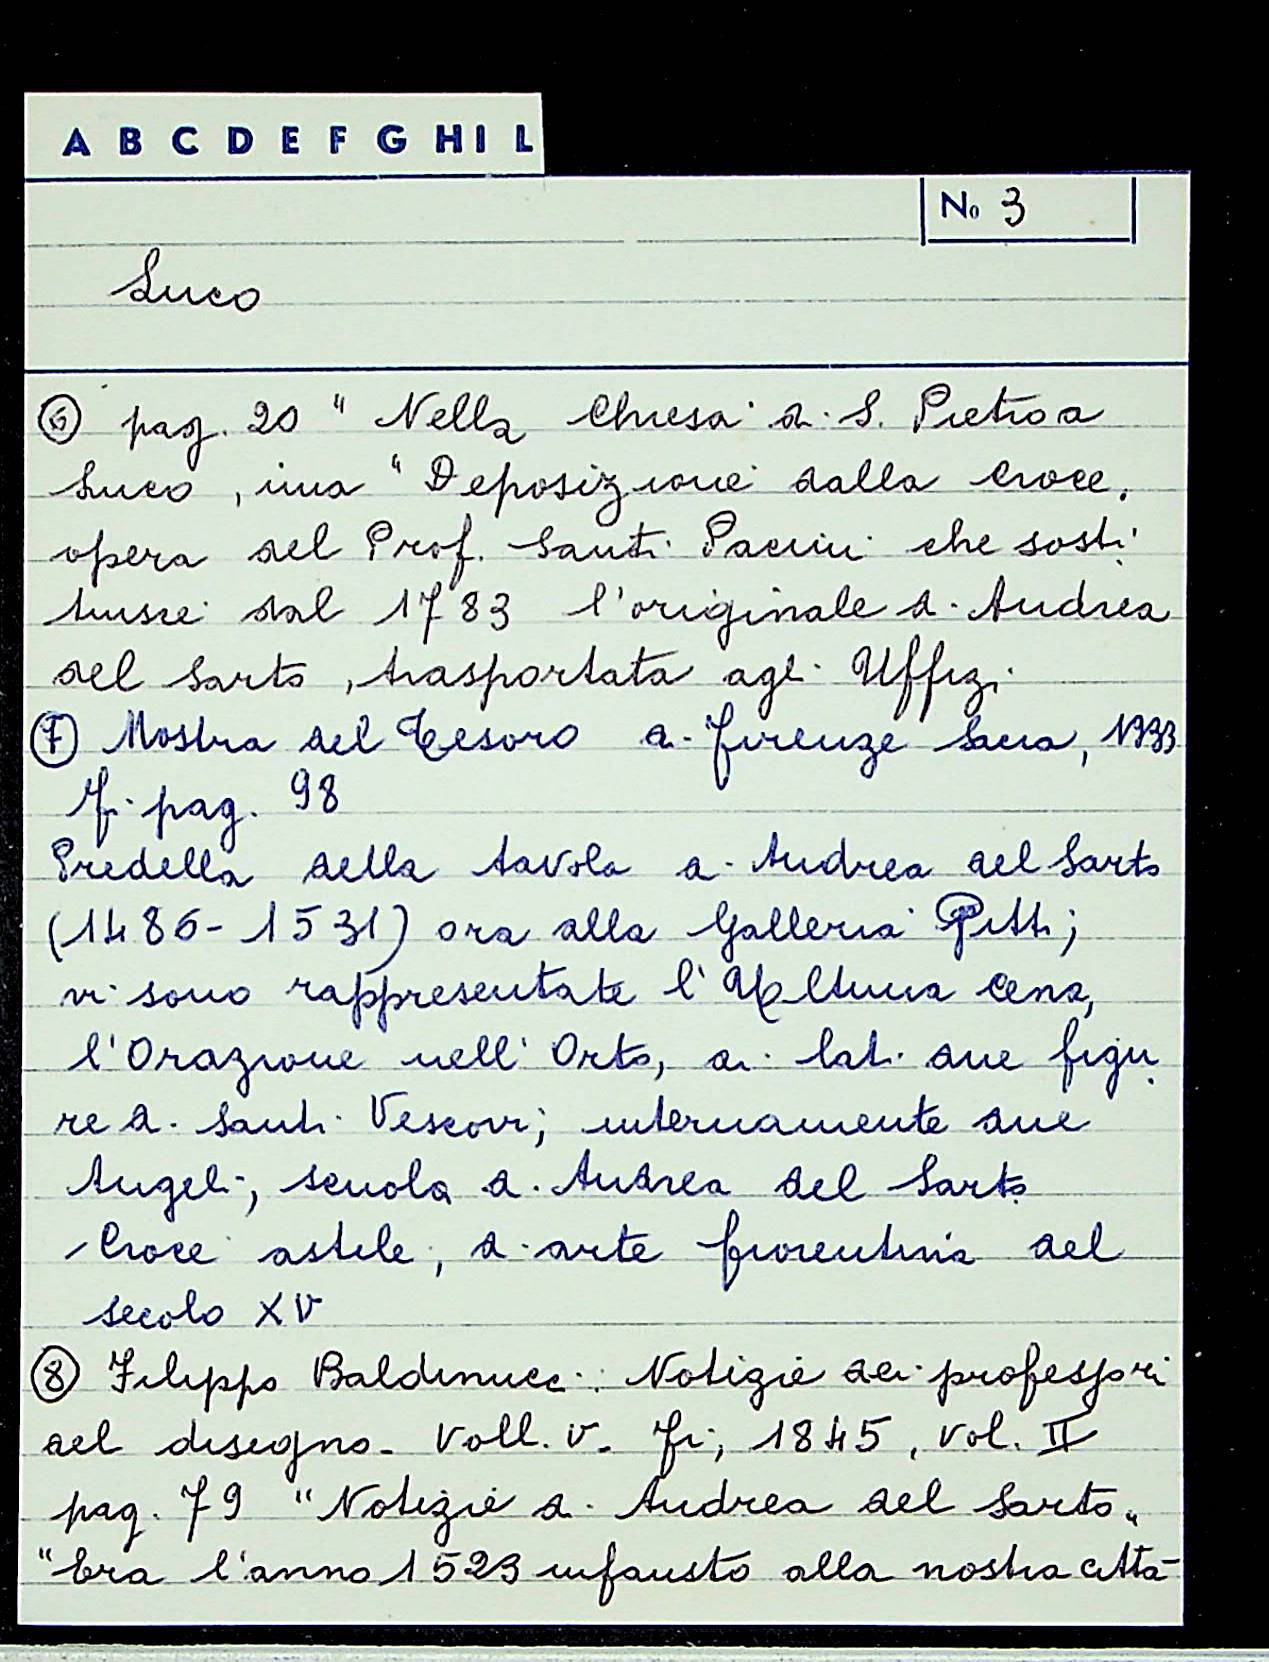 A B C D E F G H I L
No 3
Luco
⑥ pag. 20 " Nella Chiesa di S. Pietro a
Luco, una "Deposizione dalla Croce,
opera del Prof. Santi Pacini che sosti
tuisce dal 1783 l'originale di Andrea
del Sarto, trasportata agli Uffizi.
⑦ Mostra del Tesoro di Firenze Sacra, 1933
Fi. pag. 98
Predella della tavola di Andrea del Sarto
(1486-1531) ora alla Galleria Pitti;
vi sono rappresentate l'Ultima Cena,
l'Orazione nell'Orto, ai lati due figu
re di Santi Vescovi; internamente due
Angeli, scuola di Andrea del Sarto
Croce astile, di arte fiorentina del
secolo XV
⑧ Filippo Baldinucci: Notizie dei professori
del disegno. Voll. V. Fi, 1845, vol. II
pag. 79 "Notizie di Andrea del Sarto"
"Era l'anno 1523 infausto alla nostra città